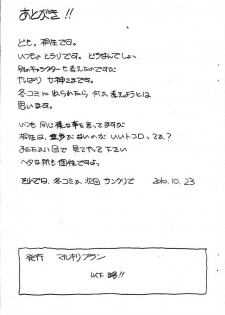 あとがき!!
ども。桐生です。
いつものとうりです。どうなんでしょ
別のキャラクターも考えたのですが
やっぱり女神さまです。
冬コミに出られたら、又、考えようとは
思います。
いつも同じ様な事を言ってますが
あたたかい目で見てやって下さい
ヘタな所も個性ですよ
それでは、冬コミか次回サンクリで 2010.10.23
発行
以下略!!